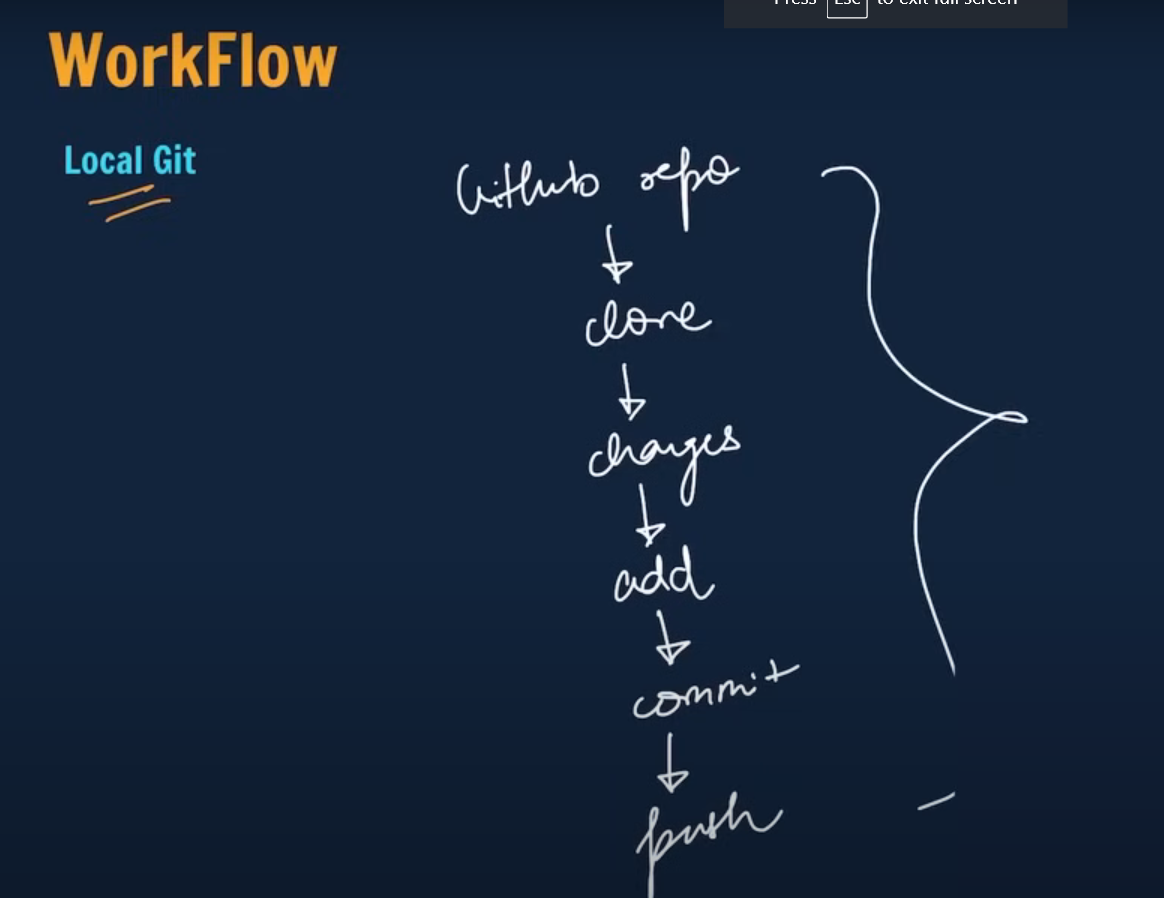 Press Esc to exit full screen
WorkFlow
Local Git
Github repo
clone
changes
add
commit
push